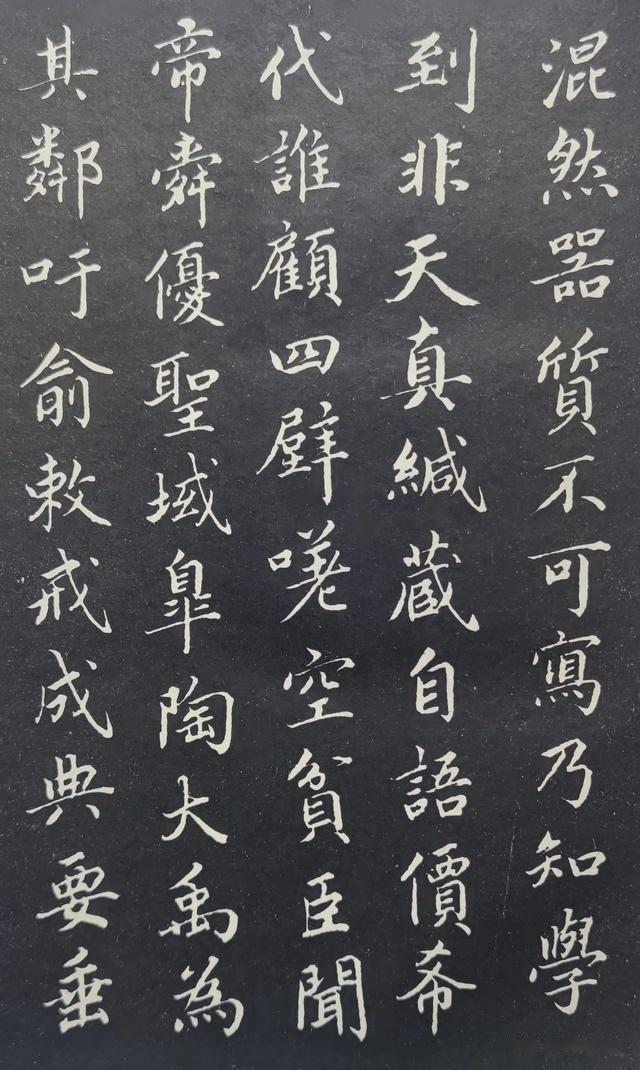 混然器質不可寫乃知學
到非天真緘藏自語價希
代誰顧四壁嗟空貧臣聞
帝舜優聖域皐陶大禹為
其鄰吁俞敕戒成典要垂